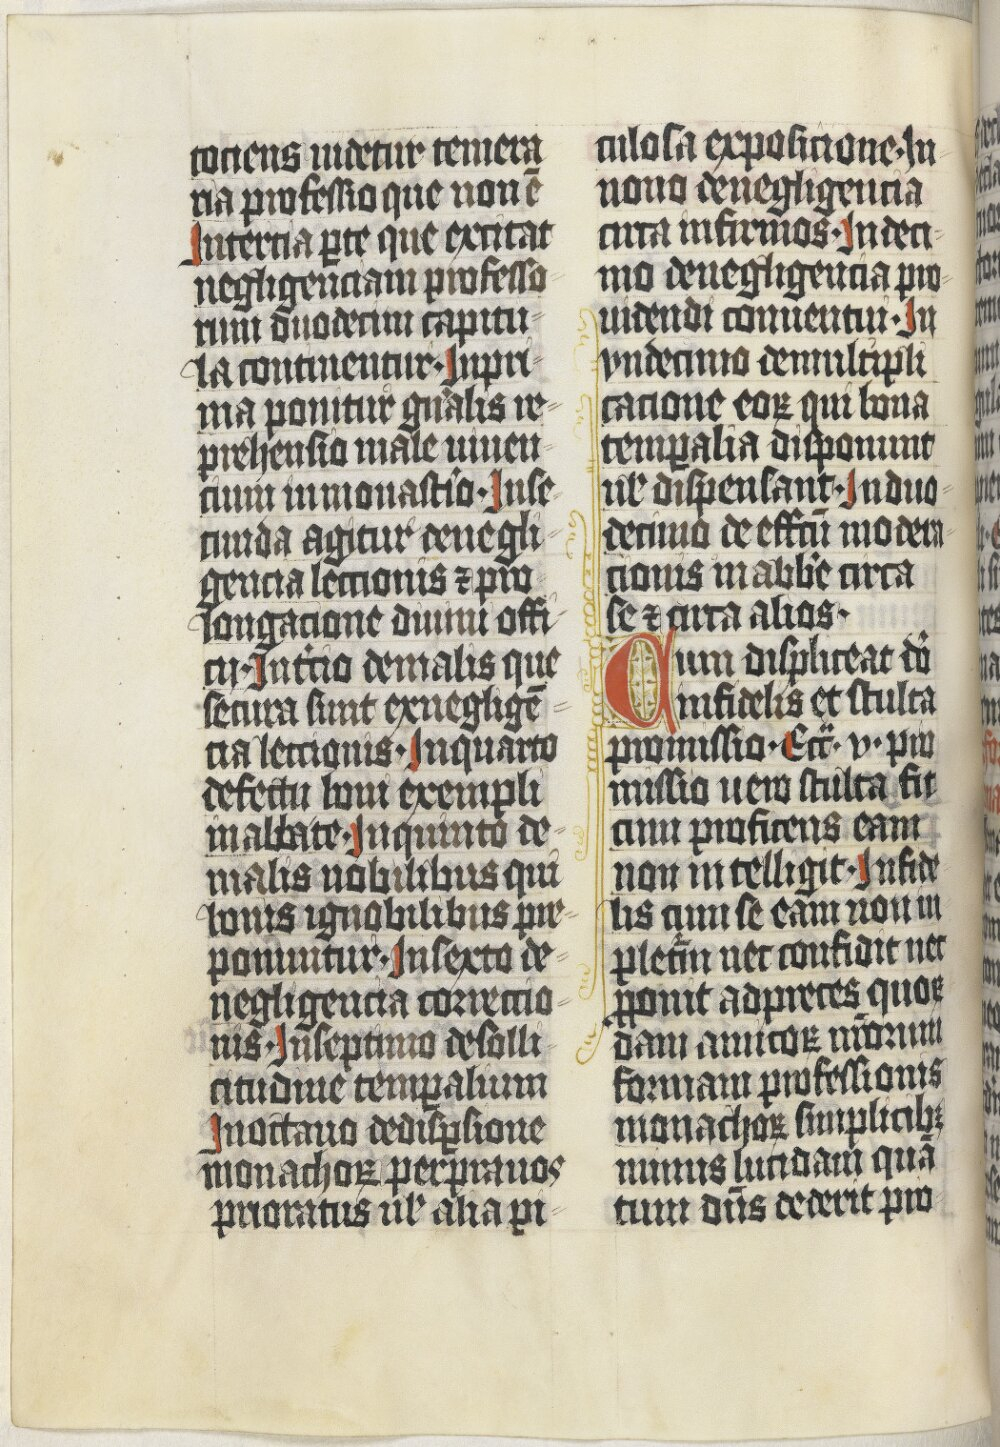 tociens uidetur temera
ria professio que non ē
Intercia ꝑte que excitat
negligenciam professo
rum duodecim capitu
la continentur· Inpri
ma ponitur gn̄alis re
prehensio male uiuen
cium in monastīo· Inse
cunda agitur de negli
gencia lectionis ⁊ pro
longacione diuini offi
cii· Int̄cio de malis que
secura sunt ex negligē
cia lectionis· In quarto
defectu boni exempli
in abbate· In quinto de
malis nobilibus qui
bonis ignobilibus pre
ponuntur· In sexto de
negligencia correctio
nis· In septimo de solli
citudine tempaliūm
In octauo de disꝑsione
monachoꝝ per prauos
prioratus ul' alia pi
culosa exposicione· In
nono de negligencia
circa infirmos· In deci
mo de negligencia pro
uidendi conuentui· In
vndecimo de multipli
cacione eoꝝ qui bona
temꝑalia disponunt
ul' dispensant· In duo
decimo de effc̄tū modera
cionis in abb̄e circa
se ⁊ circa alios·
Cum displiceat dō
infidelis et stulta
promissio· Ecc̄· v· pro
missio uero stulta fit
cum proficens eam
non intelligit· Infide
lis cum se eam non in
pletm̄ nec confidit nec
ꝓponit ad preces quoꝝ
dam amicoꝝ n̄rorum
formam professionis
monachoꝝ simplicibꝫ
minus lucidam quā
tum dn̄s dederit pro